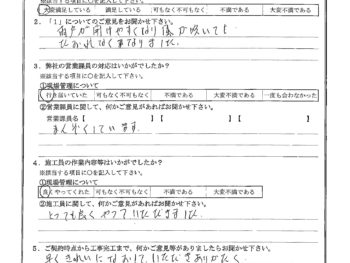 ※該当する項目に○を記入して下さい。
大変満足している 満足している 可もなく不可もなく 不満である 大変不満である
2．「1」についてのご意見をお聞かせ下さい。
雨戸が開けやすくなり 風が吹いても
たおれなくなりました。
3．弊社の営業課員の対応はいかがでしたか？
※該当する項目に○を記入して下さい。
①現場管理について
行き届いていた 可もなく不可もなく 不満である 大変不満である 一度も会わなかった
②営業課員に関して、何かご意見があればお聞かせ下さい。
営業課員名【 】【 】【 】
まんぞくしています。
4．施工員の作業内容等はいかがでしたか？
※該当する項目に○を記入して下さい。
①現場管理について
良くやってくれた 可もなく不可もなく 不満である 大変不満である
②施工員に関して、何かご意見があればお聞かせ下さい。
とっても良くやっていただきました。
5．ご契約時点から工事完工まで、何かご意見等がありましたらお聞かせ下さい。
早くきれいになおしていただきありがたく